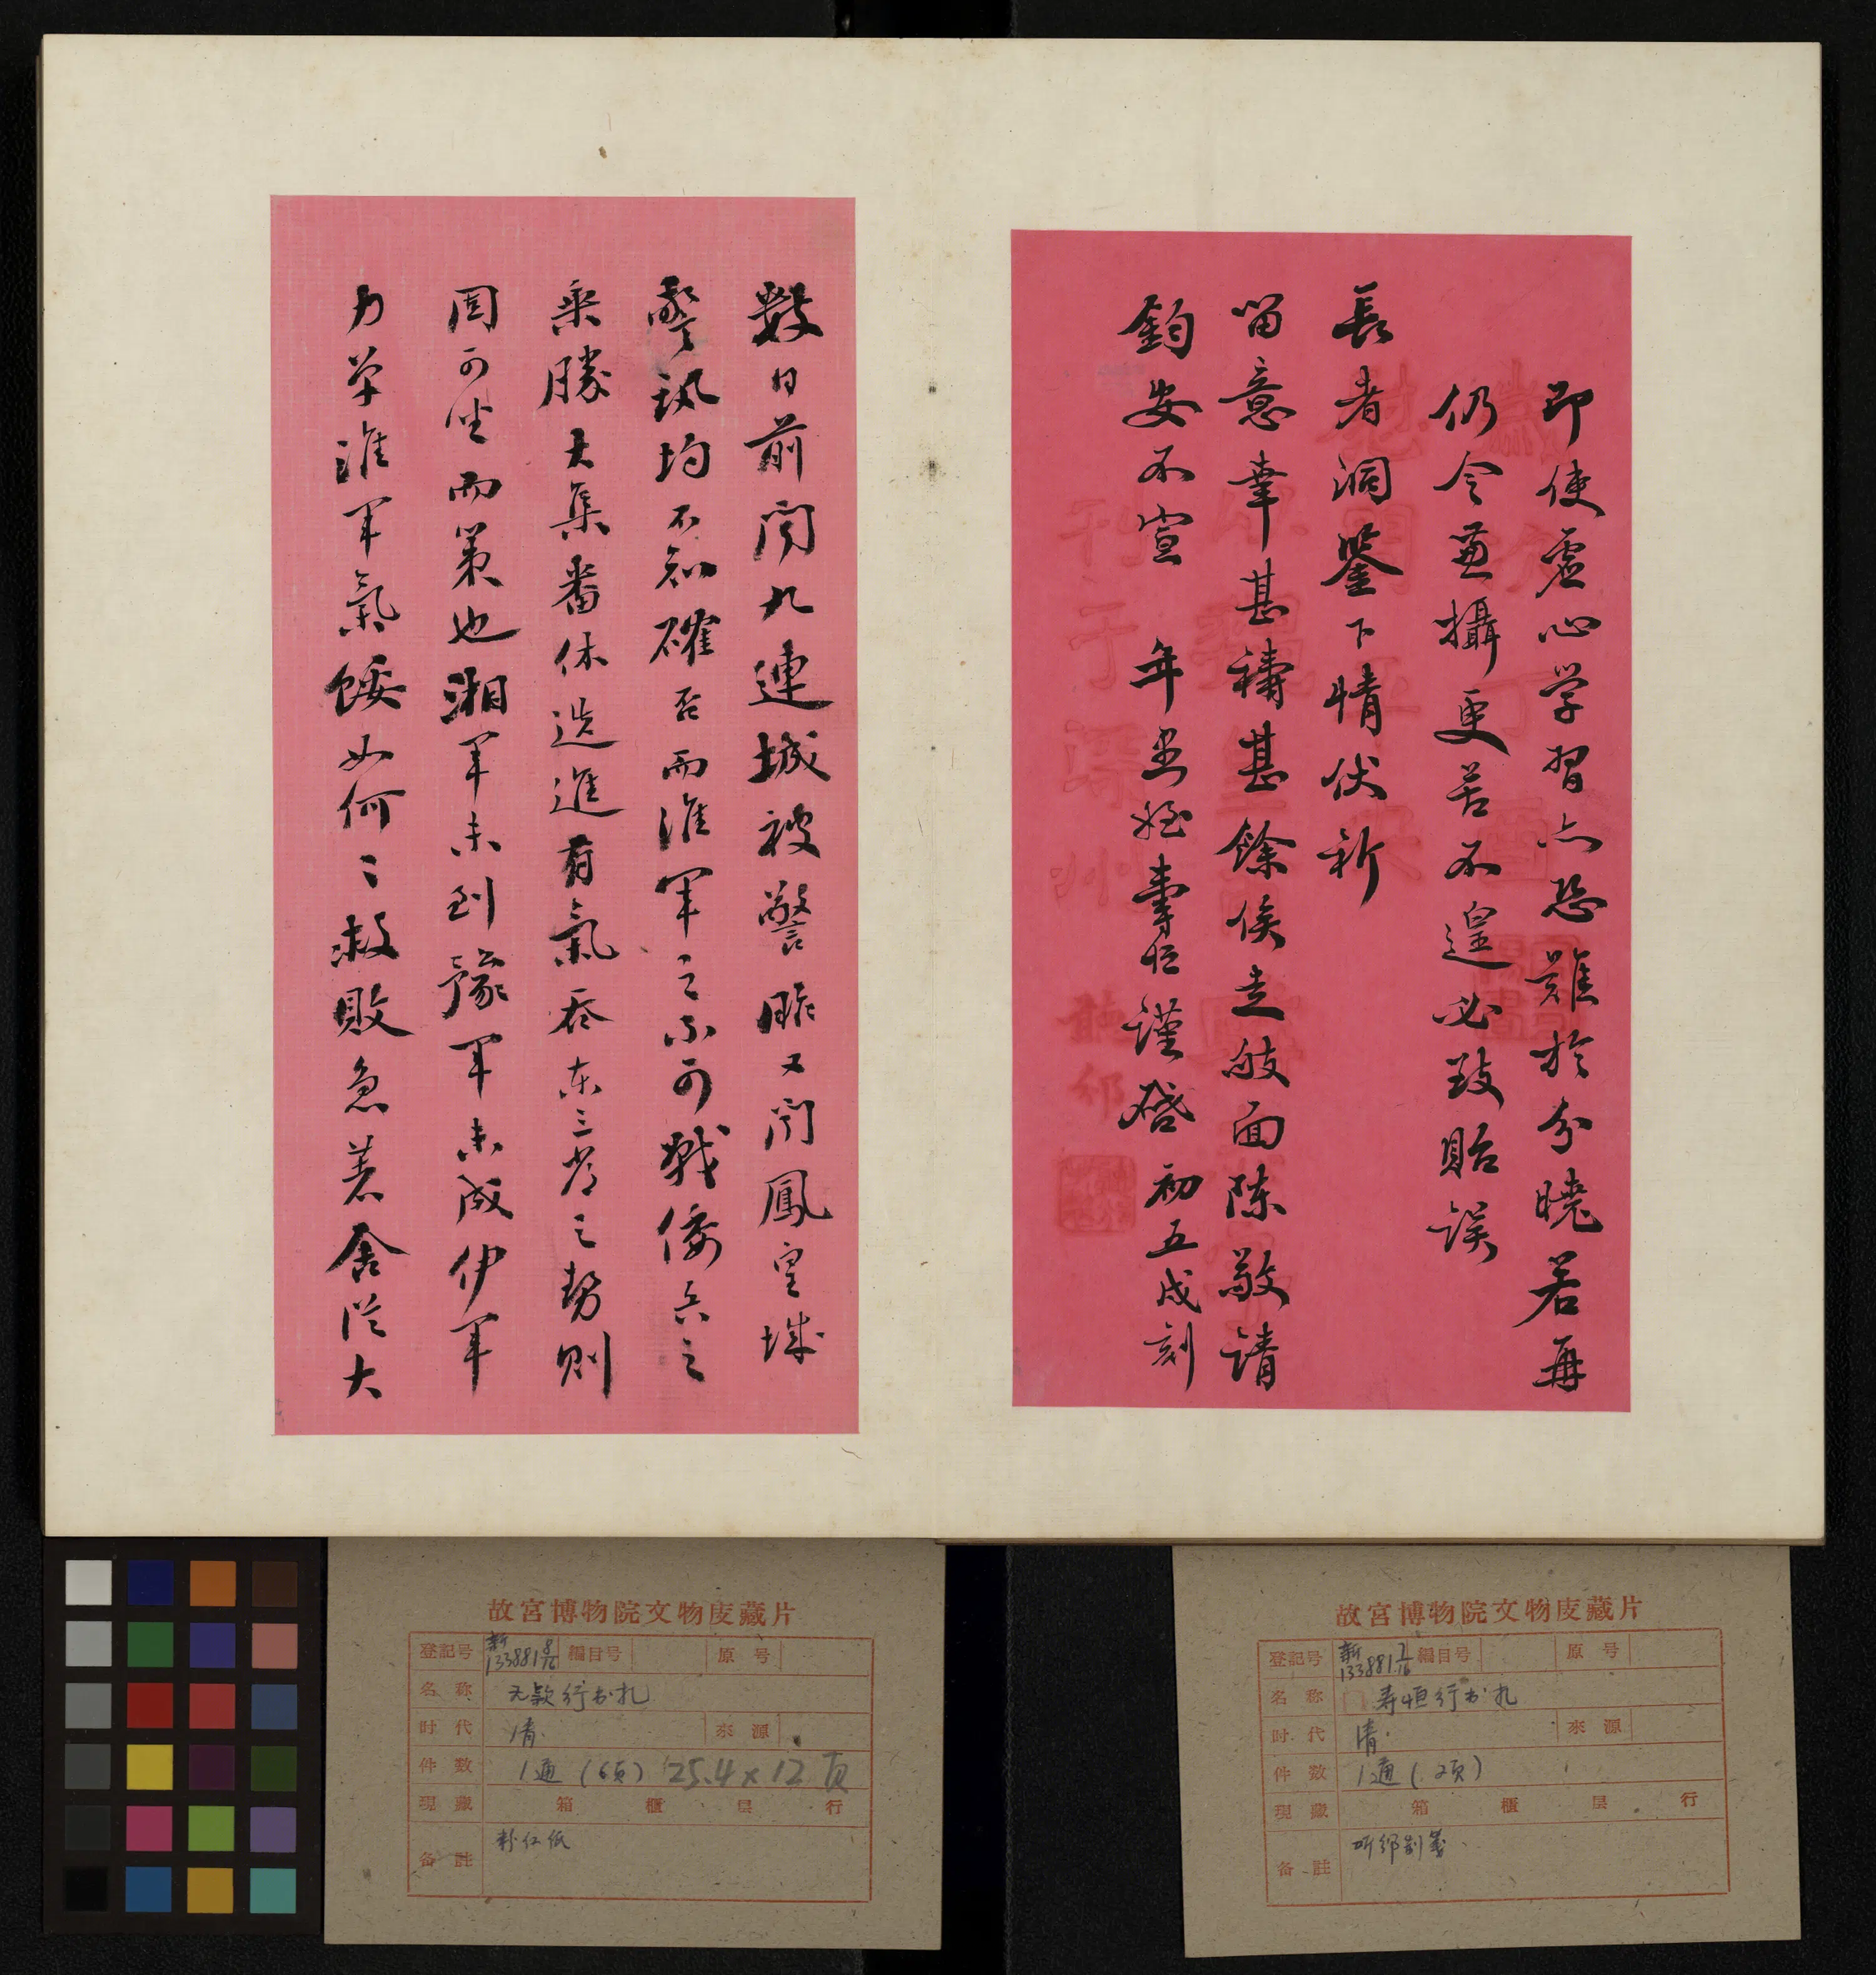 即使虛心学習亦恐難於分曉若再
仍令兼攝更苦不遑必致貽误
長者洞鑒下情伏祈
留意幸甚禱甚餘俟走敂面陈敬请
鈞安不宣 年愚姪壽恒謹啓 初五戌刻
數日前闻九連城被警昨又闻鳳皇城
警孰均不知確否而淮軍之不可戰倭兵之
乘勝大集番休迭進有氣吞东三省之勢則
固可坐而策也湘軍未到豫軍未成伊軍
力单淮軍氣餒如何〻救敗急着舍從大
故宮博物院文物庋藏片
登記号 新133881 8/16 編目号 原号
名称 无款行书札
时代 清 來源
件数 1通(6页) 25.4×12页
現藏 箱 櫃 层 行
备註 粉红纸
故宮博物院文物庋藏片
登記号 新133881 7/16 編目号 原号
名称 寿恒行书札
时代 清 來源
件数 1通(2页)
現藏 箱 櫃 层 行
备註 听邠制笺